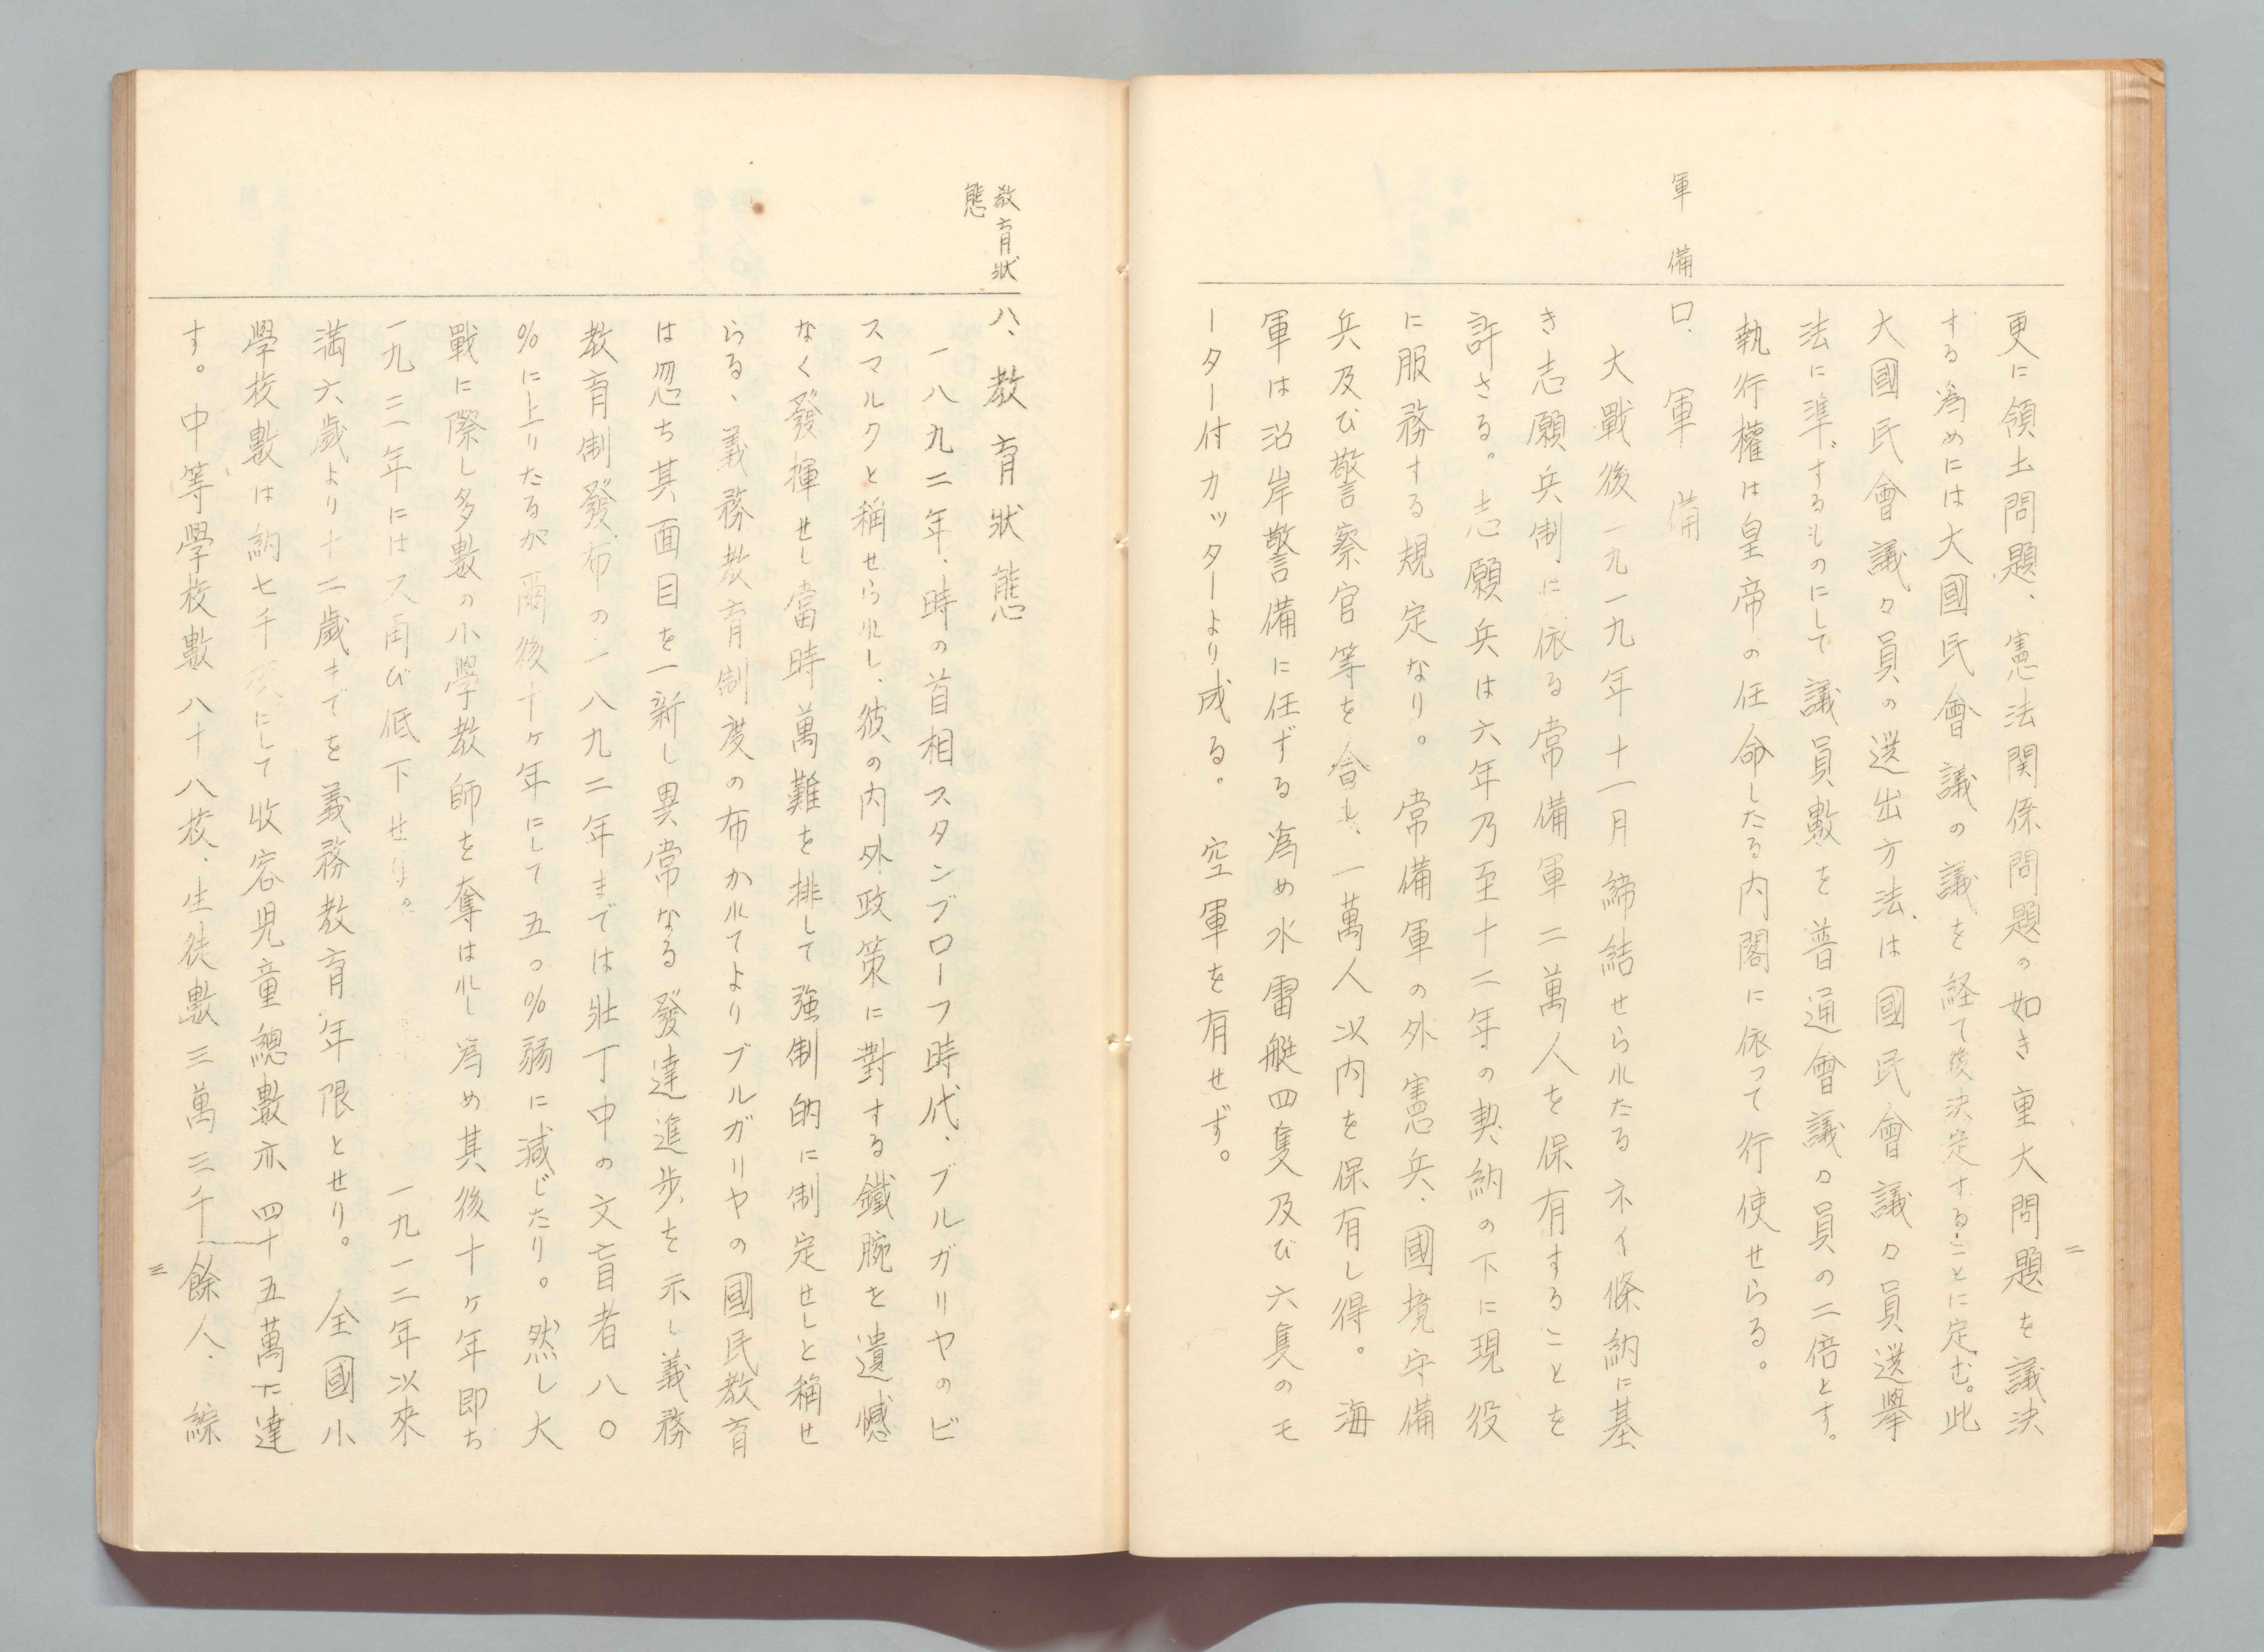 二
更に領土問題、憲法関係問題の如き重大問題を議決
する為めには大國民會議の議を経て後決定することに定む。此
大國民會議々員の選出方法は國民會議々員選擧
法に準ずるものにして議員數を普通會議々員の二倍とす。
執行權は皇帝の任命したる内閣に依つて行使せらる。
軍備
ロ、軍備
大戰後一九一九年十一月締結せられたるネイ條約に基
き志願兵制に依る常備軍二萬人を保有することを
許さる。志願兵は六年乃至十二年の契約の下に現役
に服務する規定なり。常備軍の外憲兵、國境守備
兵及び警察官等を合し、一萬人以内を保有し得。海
軍は沿岸警備に任ずる為め水雷艇四隻及び六隻のモ
ーター付カッターより成る。空軍を有せず。
教育狀
態
八、教育狀態
一八九二年、時の首相スタンブローフ時代、ブルガリヤのビ
スマルクと稱せられし、彼の内外政策に對する鐵腕を遺憾
なく發揮せし當時萬難を排して強制的に制定せしと稱せ
らる、義務教育制度の布かれてよりブルガリヤの國民教育
は忽ち其面目を一新し異常なる發達進歩を示し義務
教育制發布の一八九二年までは壯丁中の文盲者八〇
%に上りたるが爾後十ヶ年にして五〇%弱に減じたり。然し大
戰に際し多數の小學教師を奪はれし為め其後十ヶ年即ち
一九二二年には又再び低下せり。一九一二年以來
満六歳より十二歳までを義務教育年限とせり。全國小
學校數は約七千校にして收容児童總數亦四十五萬に達
す。中等學校數八十八校、生徒數三萬三千餘人、綜
三